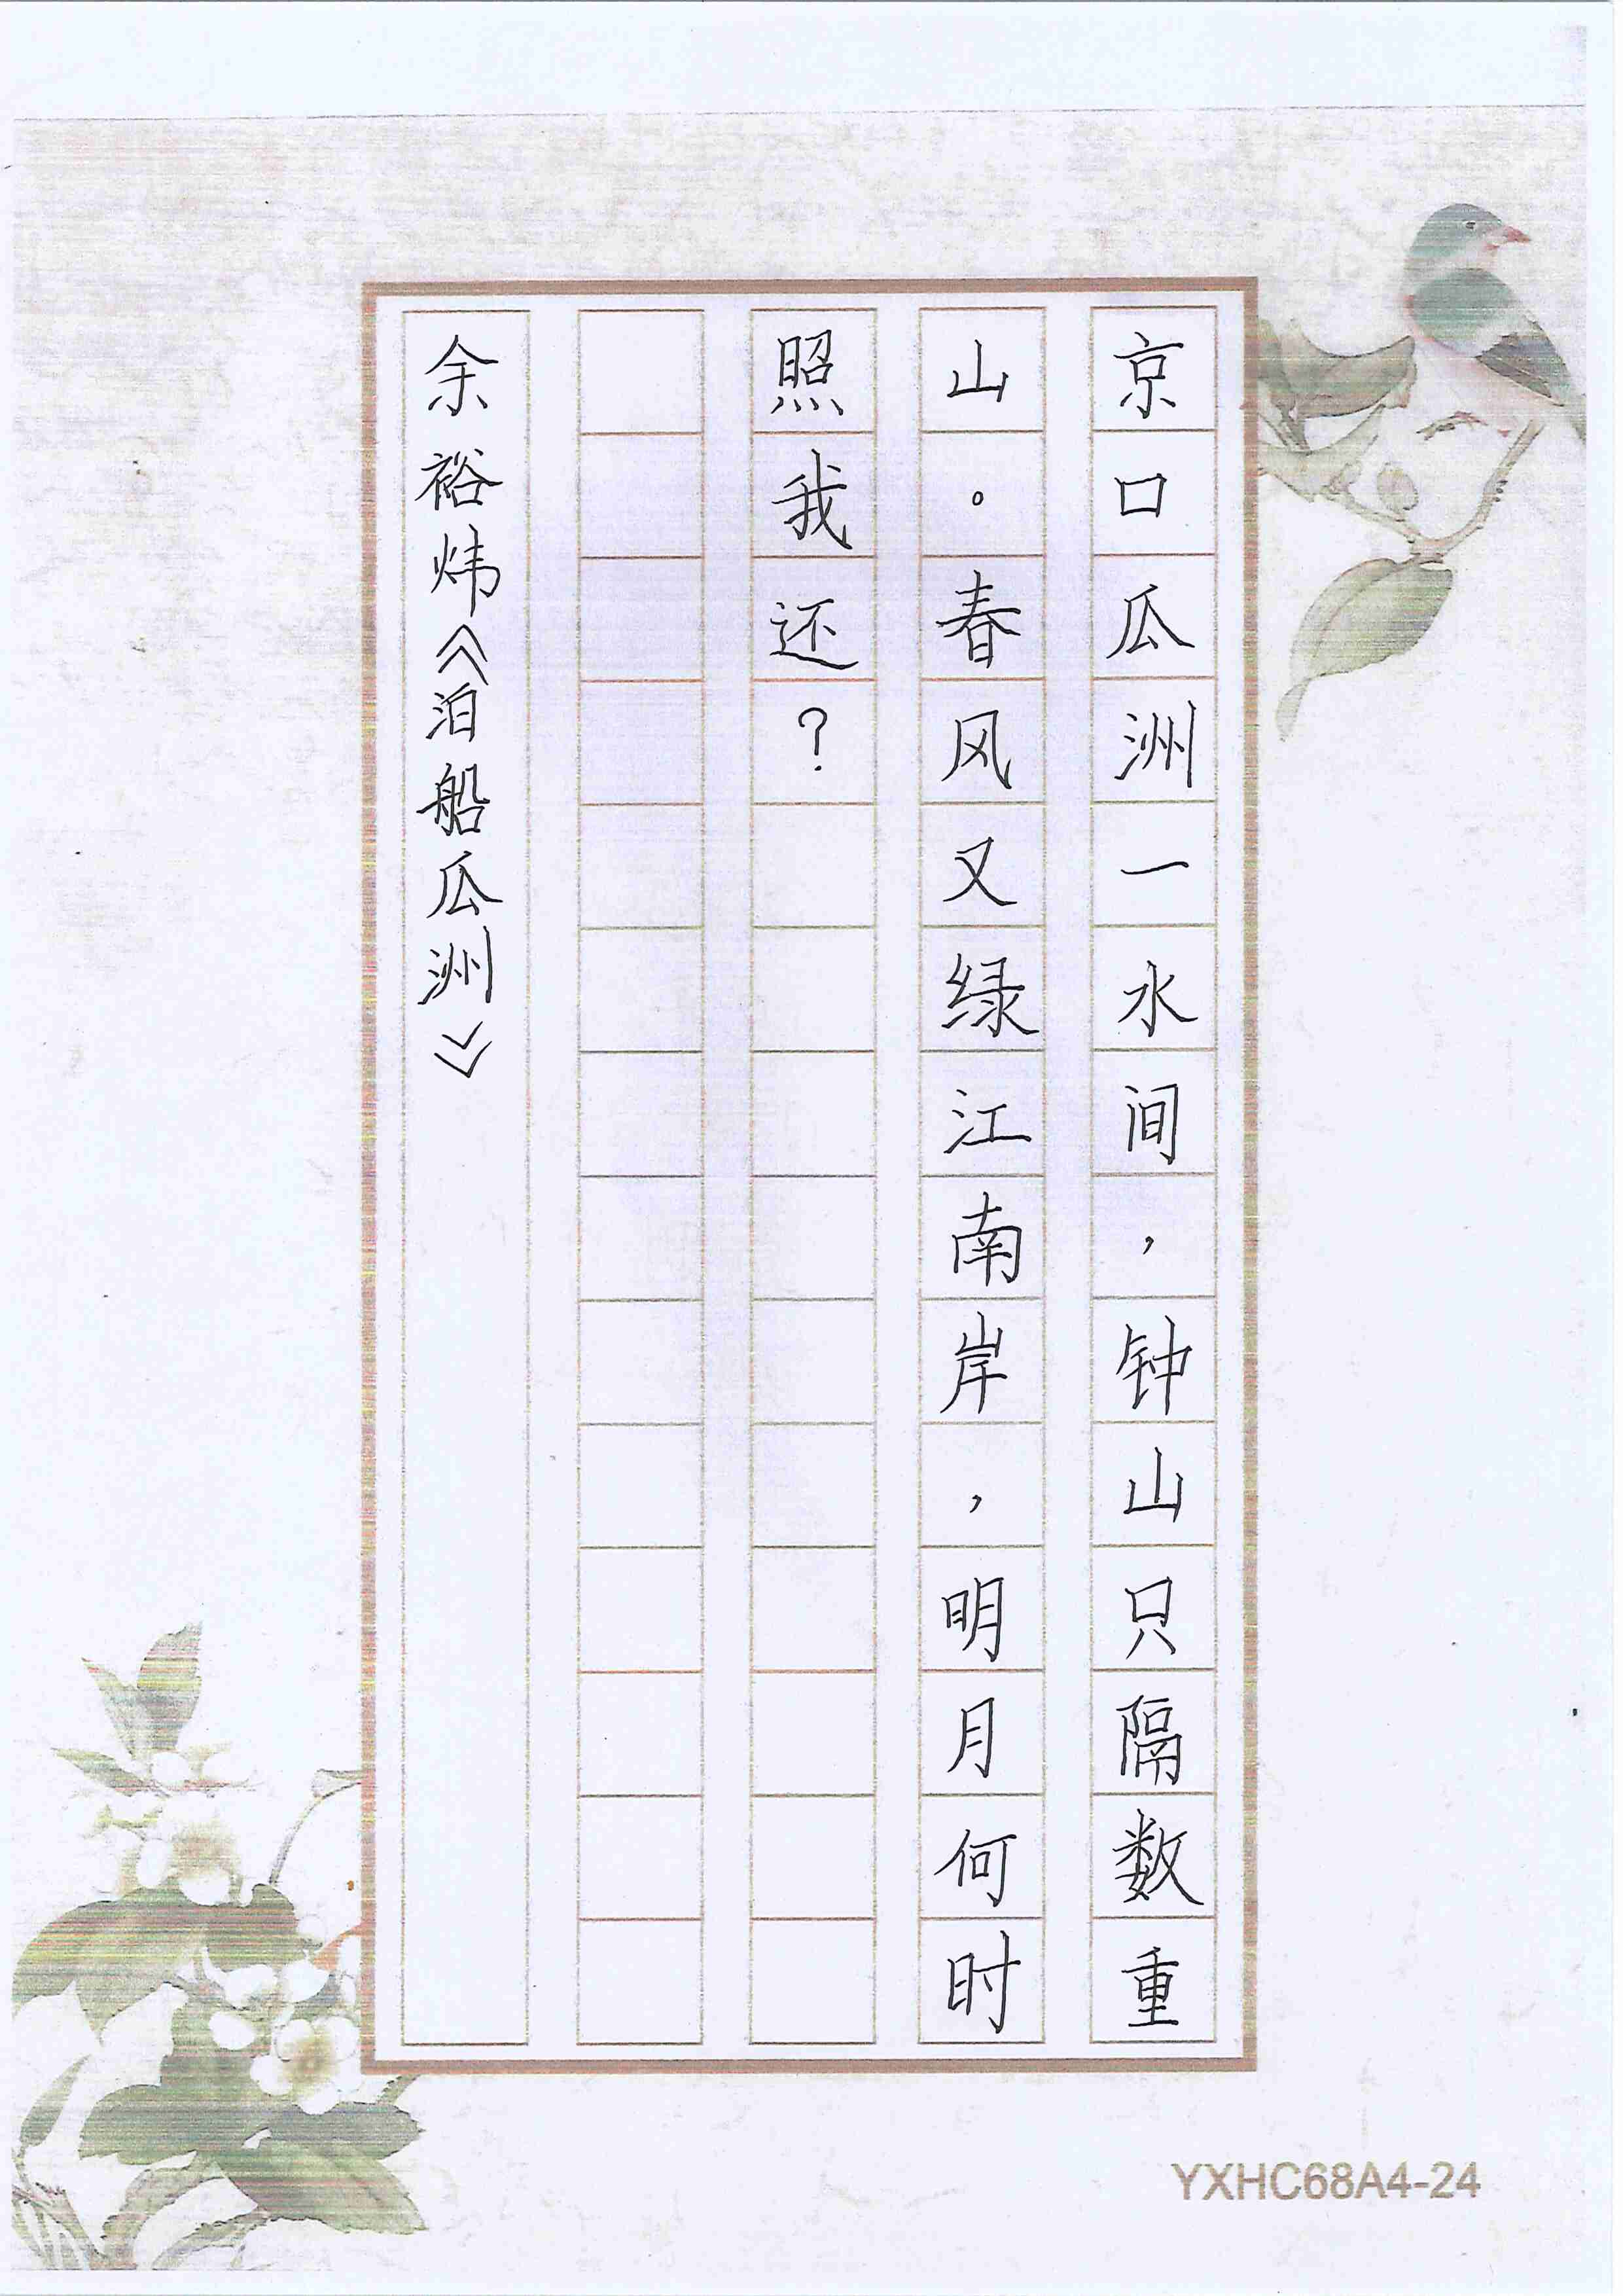 京口瓜洲一水间，钟山只隔数重
山。春风又绿江南岸，明月何时
照我还？
余裕炜《泊船瓜洲》
YXHC68A4-24